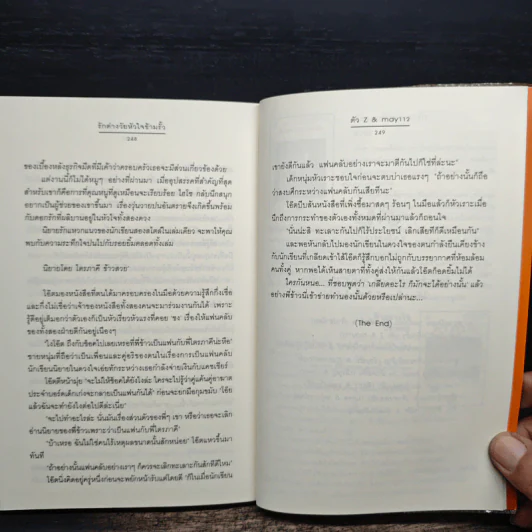 รักต่างวัยหัวใจข้ามรั้ว
248
ของเบื้องหลังธุรกิจมืดที่มีเค้าว่าครอบครัวเธอจะมีส่วนเกี่ยวข้องด้วย
แต่งานนี้ก็ไม่ได้หมูๆ อย่างที่ผ่านมา เมื่ออุปสรรคที่สำคัญที่สุด
สำหรับเขาก็คือการที่คุณหนูที่ดูเหมือนจะเรียบร้อย ไฮโซ กลับนึกสนุก
อยากเป็นผู้ช่วยของเขาขึ้นมา เรื่องวุ่นวายปนอันตรายจึงเกิดขึ้นพร้อม
กับดอกรักที่ผลิบานอยู่ในหัวใจทั้งสองดวง
นิยายรักแหวกแนวของนักเขียนสองสไตล์ในเล่มเดียว จะพาให้คุณ
พบกับความระทึกใจปนไปกับรอยยิ้มตลอดทั้งเล่ม
นิยายโดย ไตรภาคี ข้าวสวย
โอ๊ตมองหนังสือที่ตนได้มาครอบครองในมือด้วยความรู้สึกกึ่งเชื่อ
และกึ่งไม่เชื่อว่าเจ้าของหนังสือทั้งสองคนจะมาร่วมงานกันได้ เพราะ
รู้ดีอยู่เต็มอกว่าตัวเองก็เป็นหัวเรี่ยวหัวแรงที่คอย 'ชง' เรื่องให้แฟนคลับ
ของทั้งสองฝ่ายตีกันอยู่เนืองๆ
"ไงโอ๊ต ถึงกับช็อคไปเลยเหรอที่พี่ข้าวเป็นแฟนกับพี่ไตรภาคีน่ะหือ"
ชายหนุ่มที่ถือว่าเป็นเพื่อนและคู่อริของตนในเรื่องการเป็นแฟนคลับ
นักเขียนนิยายในดวงใจเอ่ยทักระหว่างที่เธอกำลังจ่ายเงินกับแคชเชียร์
โอ๊ตตีหน้ามุ่ย "จะไม่ให้ช็อคได้ยังไงล่ะ ใครจะไปรู้ว่าคู่แค้นคู่อาฆาต
ประจำบอร์ดเด็กเก่งจะกลายเป็นแฟนกันได้" ก่อนจะยกมือกุมขมับ "โอ๊ย
แล้วฉันจะทำยังไงต่อไปดีล่ะเนี่ย"
"จะไปทำอะไรล่ะ นั่นมันเรื่องส่วนตัวของพี่ๆ เขา หรือว่าเธอจะเลิก
อ่านนิยายของพี่ข้าวเพราะว่าเป็นแฟนกับพี่ไตรภาคี"
"บ้าเหรอ ฉันไม่ใช่คนไร้เหตุผลขนาดนั้นสักหน่อย" โอ๊ตแหวขึ้นมา
ทันที
"ถ้าอย่างนั้นแฟนคลับอย่างเราๆ ก็ควรจะเลิกทะเลาะกันสักทีดีไหม"
โอ๊ตนิ่งคิดอยู่ครู่หนึ่งก่อนจะพยักหน้ารับแต่โดยดี "ก็ในเมื่อนักเขียน
ตัว Z & mayาาว
249
เขายังดีกันแล้ว แฟนคลับอย่างเราจะมาตีกันไปก็ใช่ที่ล่ะนะ"
เด็กหนุ่มหัวเราะชอบใจก่อนจะตบบ่าเธอแรงๆ "ถ้าอย่างนั้นก็ถือ
ว่าสงบศึกระหว่างแฟนคลับกันเสียทีนะ"
โอ๊ตบีบสันหนังสือที่เพิ่งซื้อมาสดๆ ร้อนๆ ในมือแล้วก็หัวเราะเมื่อ
นึกถึงการกระทำของตัวเองทั้งหมดที่ผ่านมาแล้วก็ถอนใจ
"นั่นน่ะสิ ทะเลาะกันไปก็ไร้ประโยชน์ เลิกเสียทีก็ดีเหมือนกัน"
และพอหันกลับไปมองนักเขียนในดวงใจของตนกำลังยืนเคียงข้าง
กับนักเขียนที่เกลียดเข้าไส้โอ๊ตก็รู้สึกบอกไม่ถูกกับบรรยากาศที่ห้อมล้อม
คนทั้งคู่ หากพอได้เห็นสายตาที่ทั้งคู่ส่งให้กันแล้วโอ๊ตก็อดยิ้มไม่ได้
ใครกันหนอ... ที่ชอบพูดว่า 'เกลียดอะไร ก็มักจะได้อย่างนั้น' แล้ว
อย่างพี่ข้าวนี่เข้าข่ายทำนองนั้นด้วยหรือเปล่านะ...
(The End)